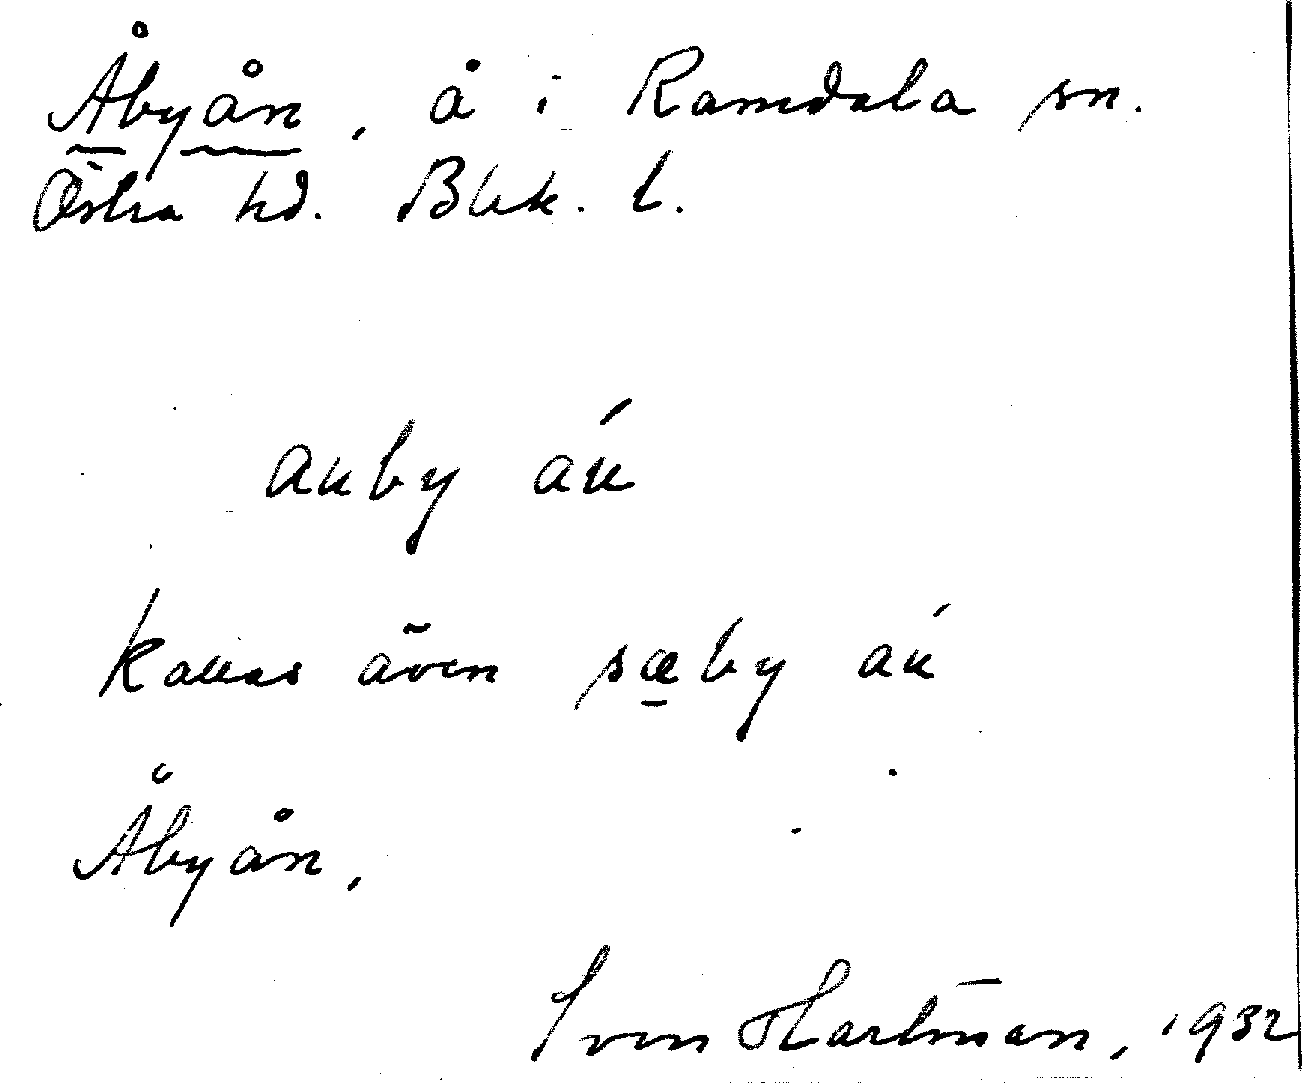 Åbyån, å i Ramdala sn.
Östra hd. Blek. l.
auby áu
kallas även sæby áu
Åbyån,
Sven Hartman, 1932